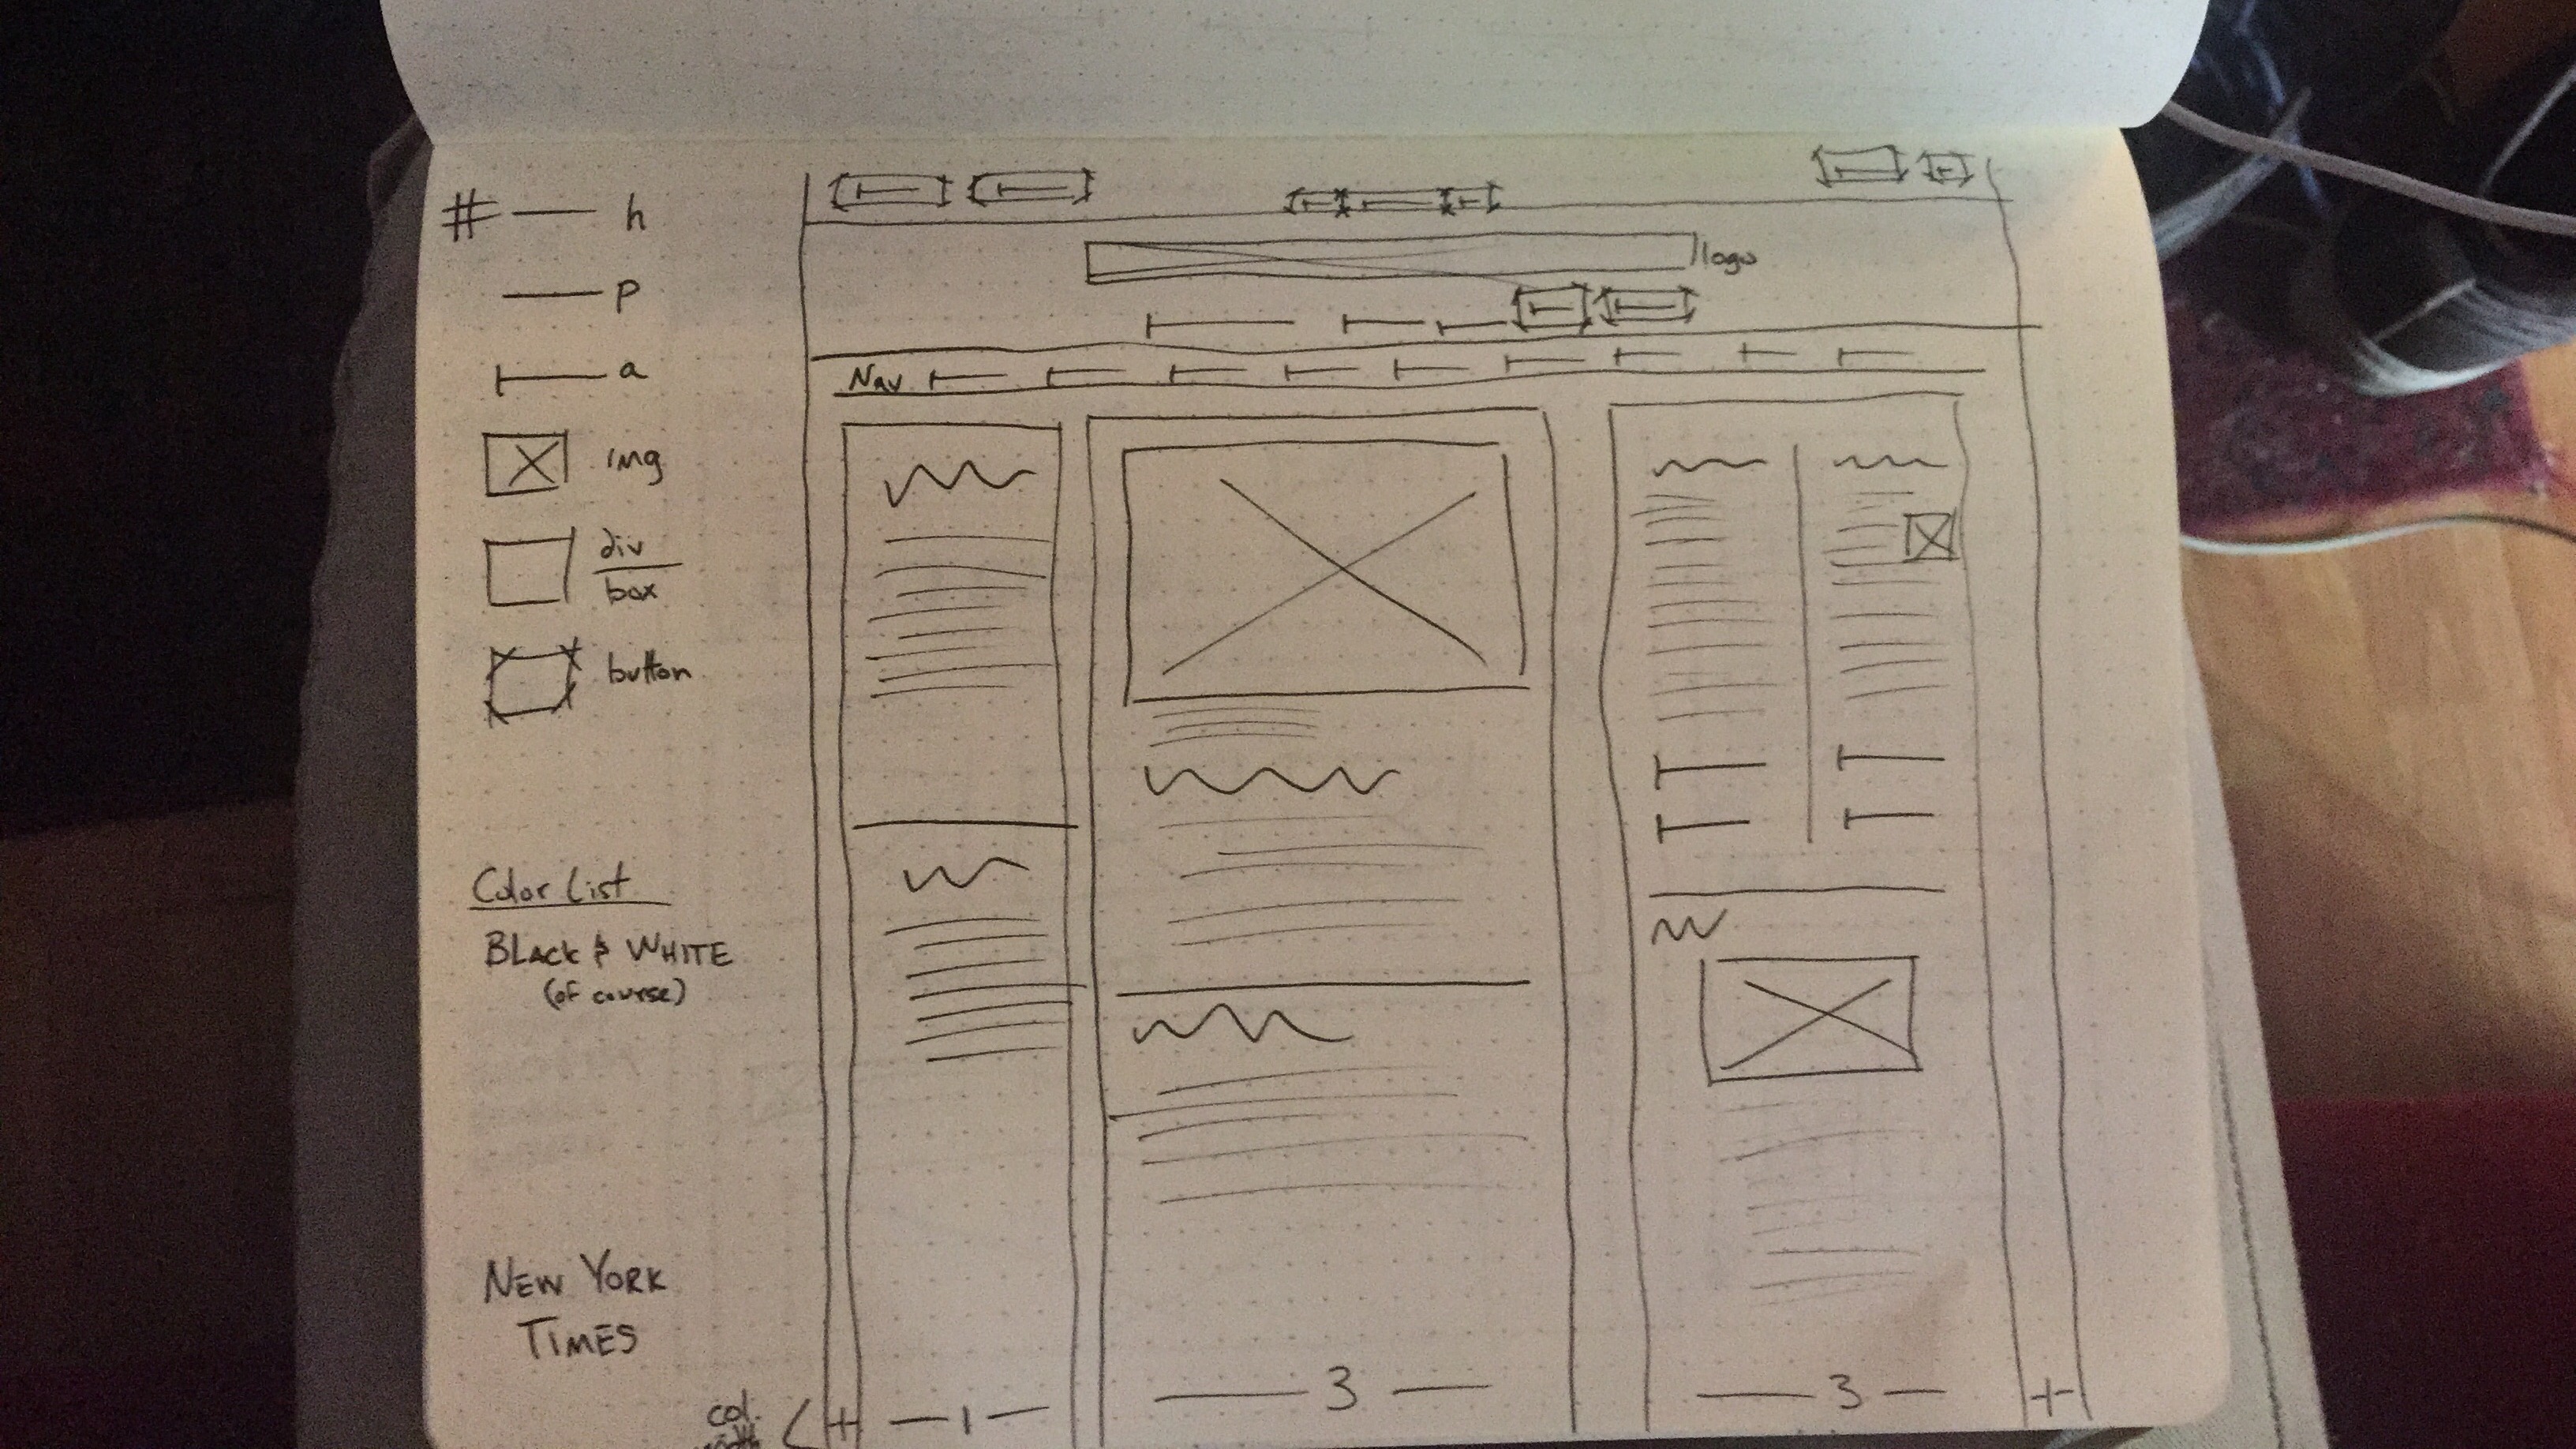 # h
p
a
img
div
box
button
Color List
BLACK & WHITE
(of course)
NEW YORK
TIMES
logo
Nav
col.
width
1
3
3